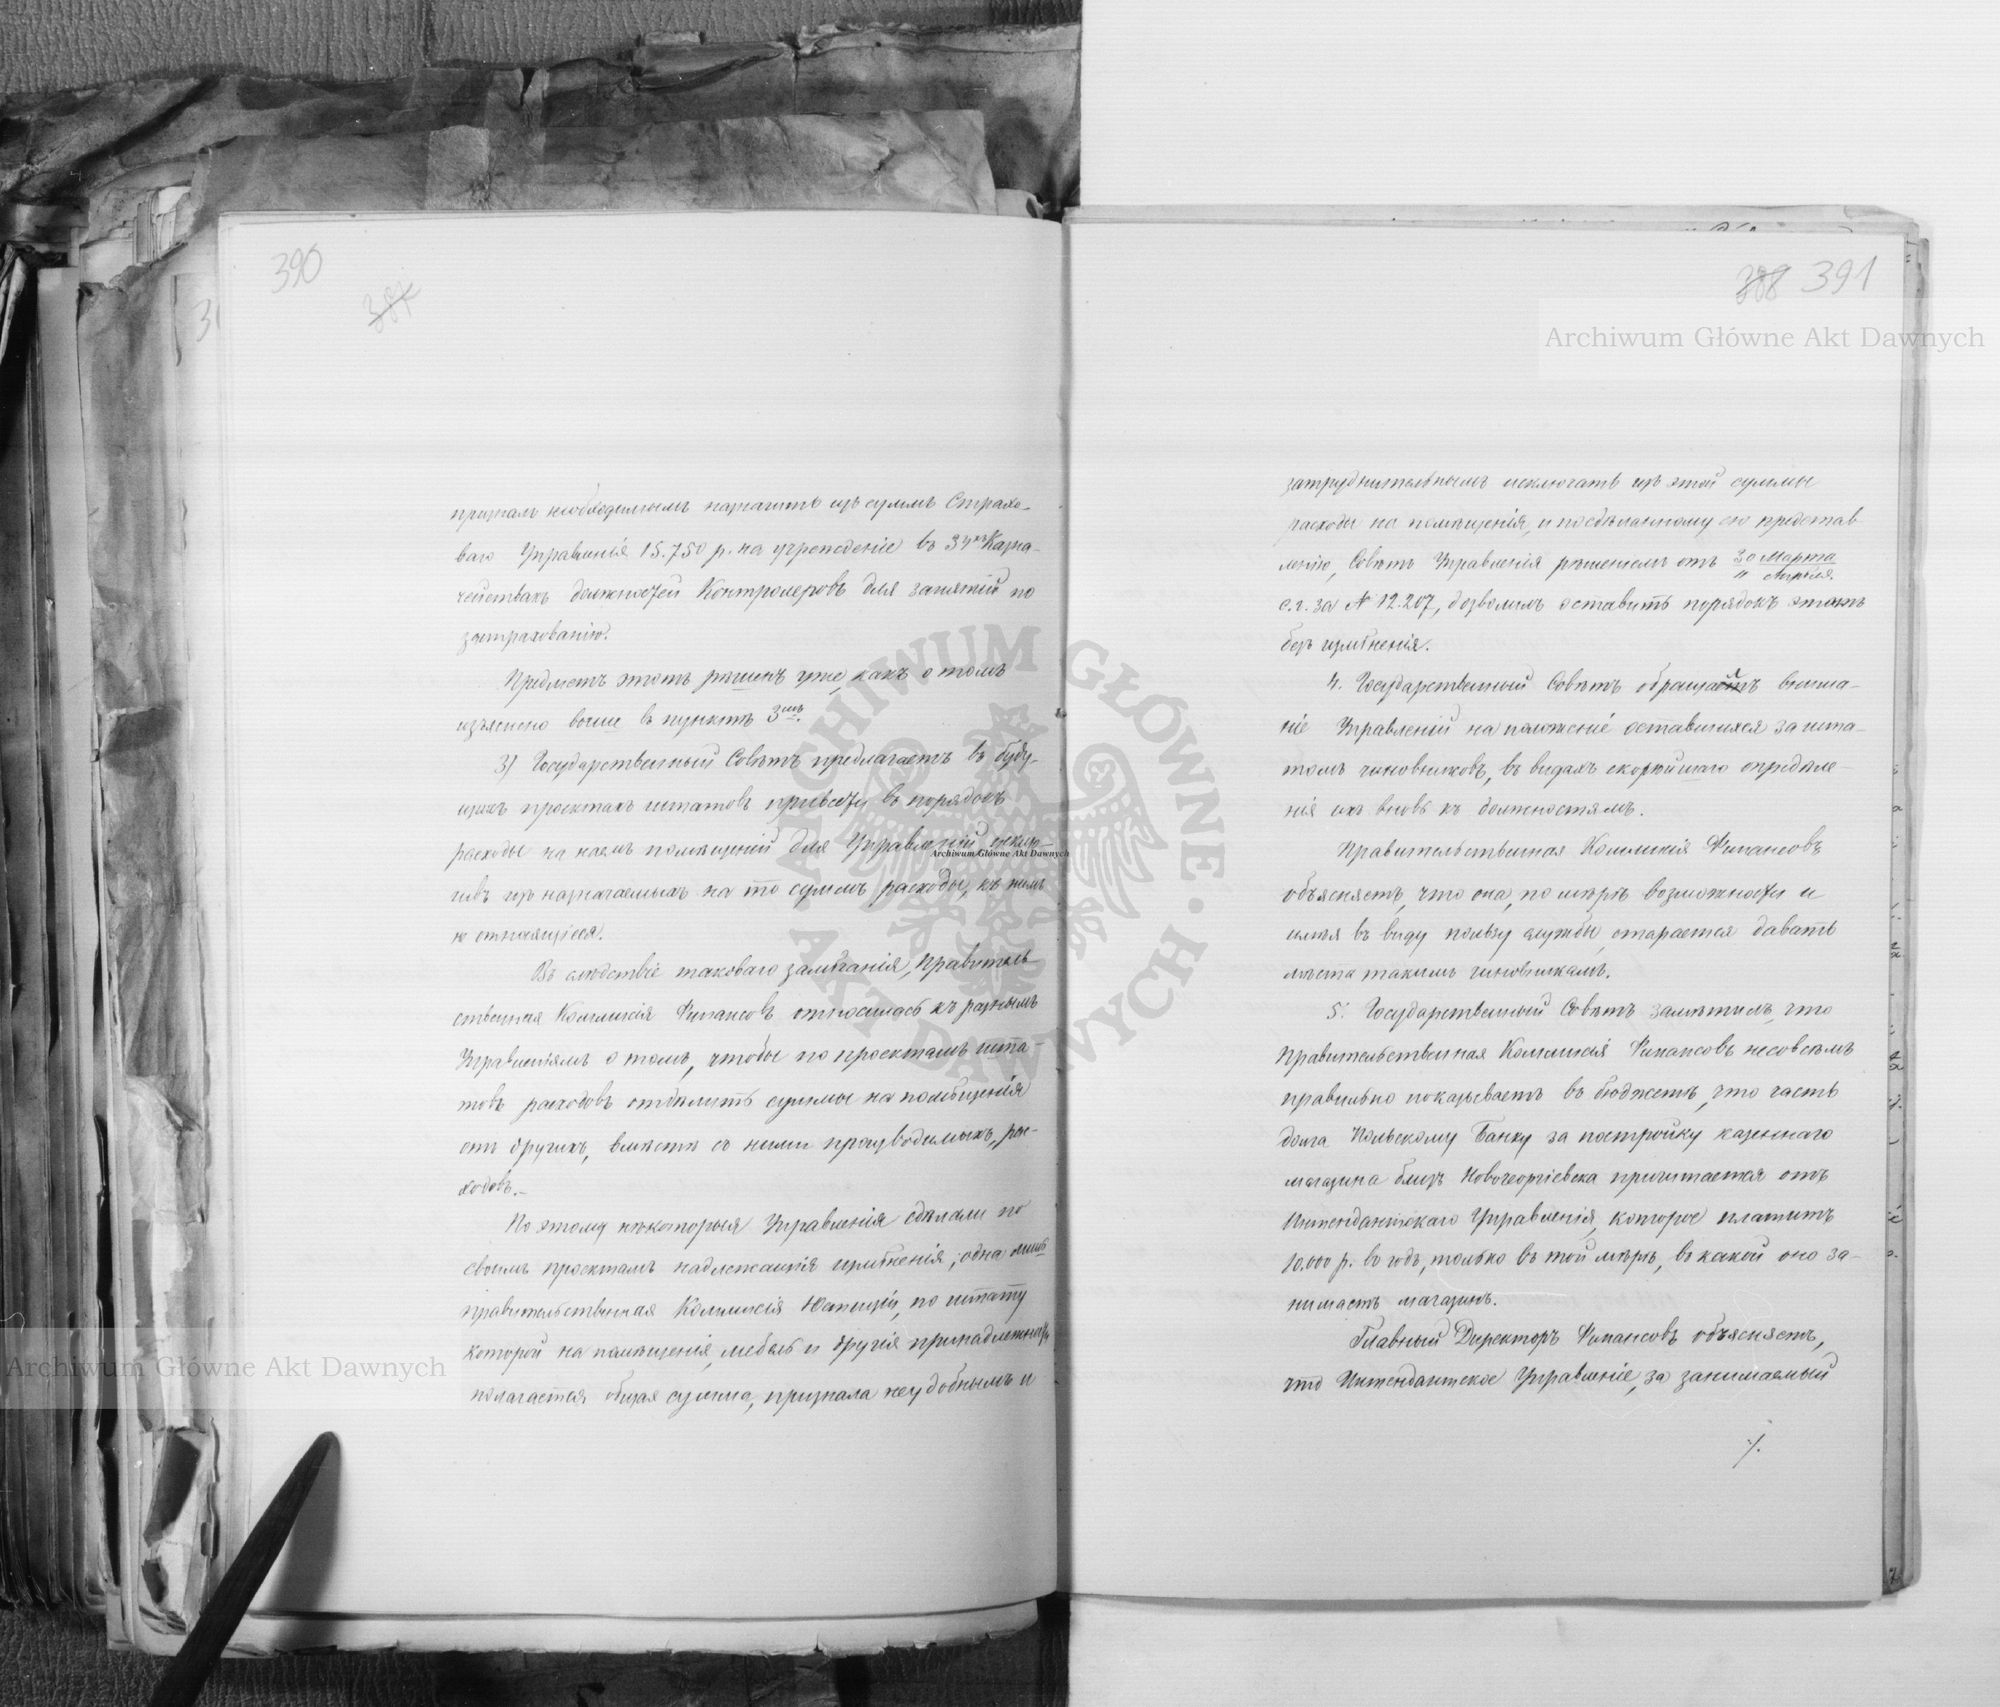 390
387
призналъ необходимымъ назначить изъ суммъ Страхо-
ваго Управленія 15.750 р. на учрежденіе въ 34хъ Казна-
чействахъ должностей Контролеровъ для занятій по
застрахованію.
Предметъ этотъ рѣшенъ уже, какъ о томъ
изъяснено выше въ пунктѣ 3мъ.
3) Государственный Совѣтъ предлагаетъ въ буду-
щихъ проектахъ штатовъ привести въ порядокъ
расходы на наемъ помѣщеній для Управленій, исклю-
чивъ изъ назначаемыхъ на то суммъ расходы, къ нимъ
не относящіеся.
Въ слѣдствіе таковаго замѣчанія, Правитель-
ственная Коммисія Финансовъ относилась къ разнымъ
Управленіямъ о томъ, чтобы по проектамъ шта-
товъ расходовъ отдѣлить суммы на помѣщенія
отъ другихъ, вмѣстѣ съ ними производимыхъ, рас-
ходовъ.-
По этому нѣкоторыя Управленія сдѣлали по
своимъ проектамъ надлежащія измѣненія; одна лишь
Правительственная Коммисія Юстиціи, по штату
которой на помѣщенія, мебель и другія принадлежности
полагается общая сумма, признала неудобнымъ и
388 391
затруднительнымъ исключать изъ этой суммы
расходы на помѣщенія, и по сдѣланному ею представ-
ленію, Совѣтъ Управленія рѣшеніемъ отъ 30 Марта
11 Апрѣля
с.г. за № 12.207, дозволилъ оставить порядокъ этотъ
безъ измѣненія.
4. Государственный Совѣтъ обращаетъ внима-
ніе Управленій на положеніе оставшихся за шта-
томъ чиновниковъ, въ видахъ скорѣйшаго опредѣле-
нія ихъ вновь къ должностямъ.
Правительственная Коммисія Финансовъ
объясняетъ, что она, по мѣрѣ возможности и
имѣя въ виду пользу службы, старается давать
мѣста такимъ чиновникамъ.
5. Государственный Совѣтъ замѣтилъ, что
Правительственная Коммисія Финансовъ несовсѣмъ
правильно показываетъ въ бюджетѣ, что часть
долга Польскому Банку за постройку казеннаго
магазина близъ Новогеоргіевска причитается отъ
Интендантскаго Управленія, которое платитъ
10.000 р. въ годъ, только въ той мѣрѣ, въ какой оно за-
нимаетъ магазинъ.
Главный Директоръ Финансовъ объясняетъ,
что Интендантское Управленіе, за занимаемый
./.
Archiwum Główne Akt Dawnych
Archiwum Główne Akt Dawnych
Archiwum Główne Akt Dawnych
ARCHIWUM GŁÓWNE AKT DAWNYCH